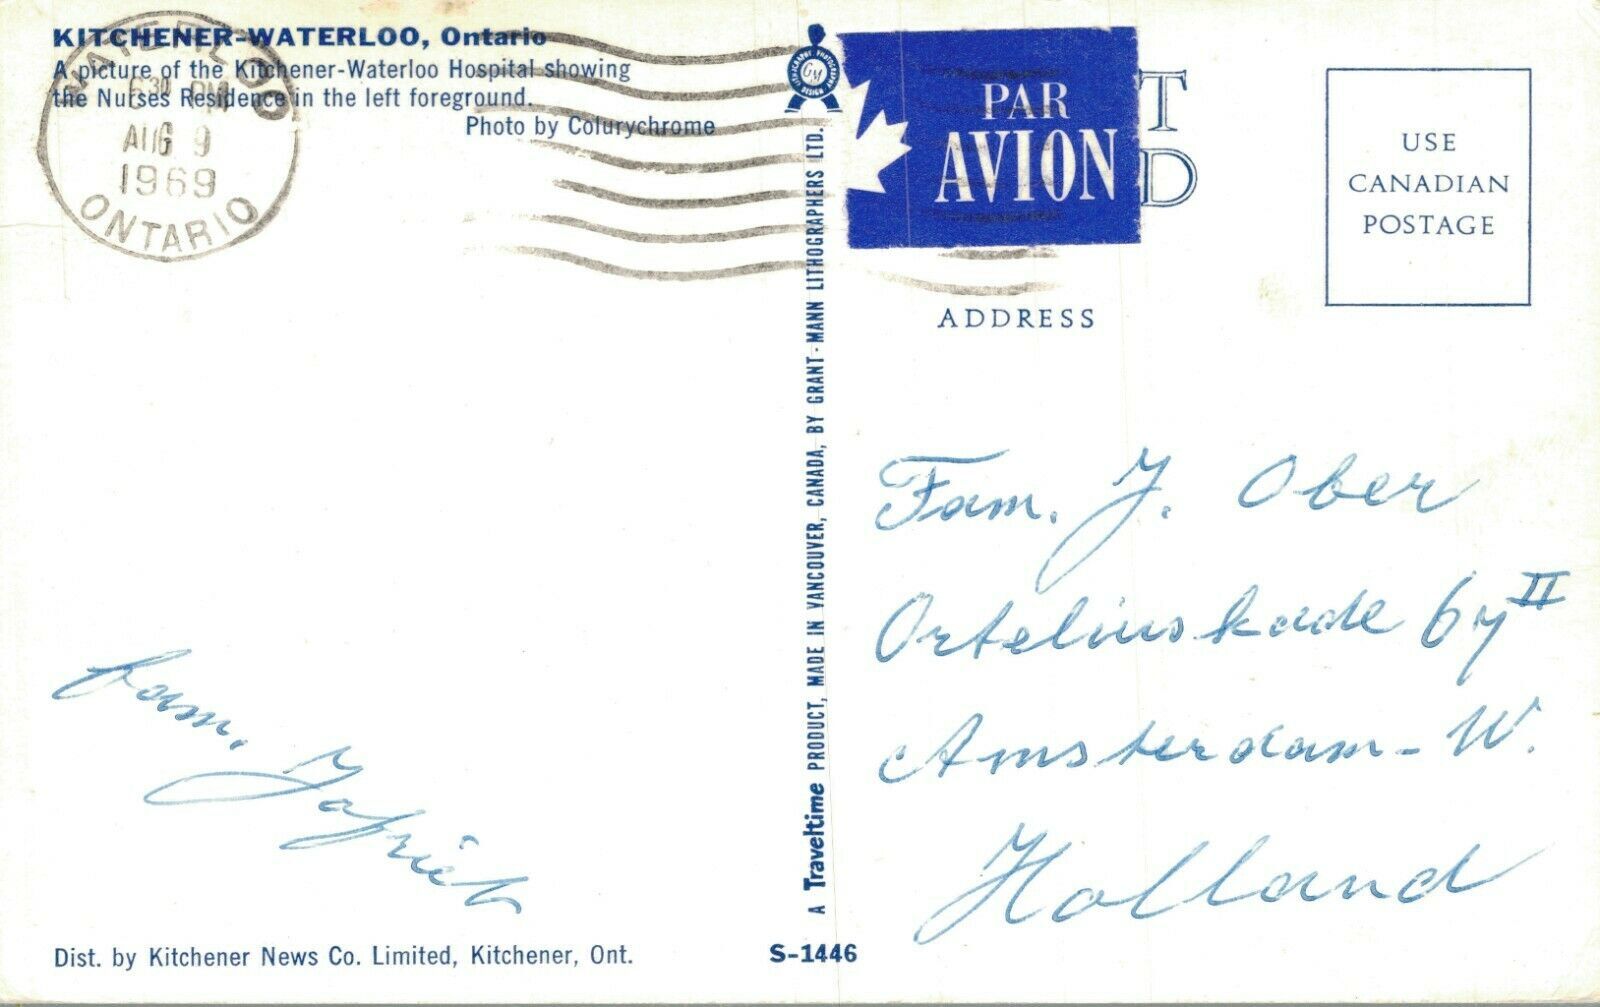 KITCHENER-WATERLOO, Ontario
A picture of the Kitchener-Waterloo Hospital showing
the Nurses Residence in the left foreground.
Photo by Colurychrome
WATERLOO
630 PM
AUG 9
1969
ONTARIO
fam.
Dist. by Kitchener News Co. Limited, Kitchener, Ont.
S-1446
A Traveltime PRODUCT, MADE IN VANCOUVER, CANADA, BY GRANT-MANN LITHOGRAPHERS LTD.
LITHOGRAPHY PHOTOGRAPHY
GM
DESIGN
PAR
AVION
T
D
USE
CANADIAN
POSTAGE
ADDRESS
Fam. J. Ober
Orteliuskade 67 II
Amsterdam-W.
Holland